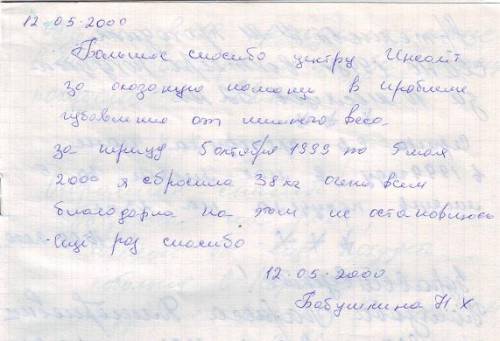 12.05.2000
Большое спасибо центру Инсайт
за оказаную помощь в проблеме
избавления от лишнего веса.
за период 5 октября 1999 по 5 мая
2000 я сбросила 38 кг очень всем
благодарна на этом не остановлюсь
ещё раз спасибо
12.05.2000
Бабушкина Н.Х